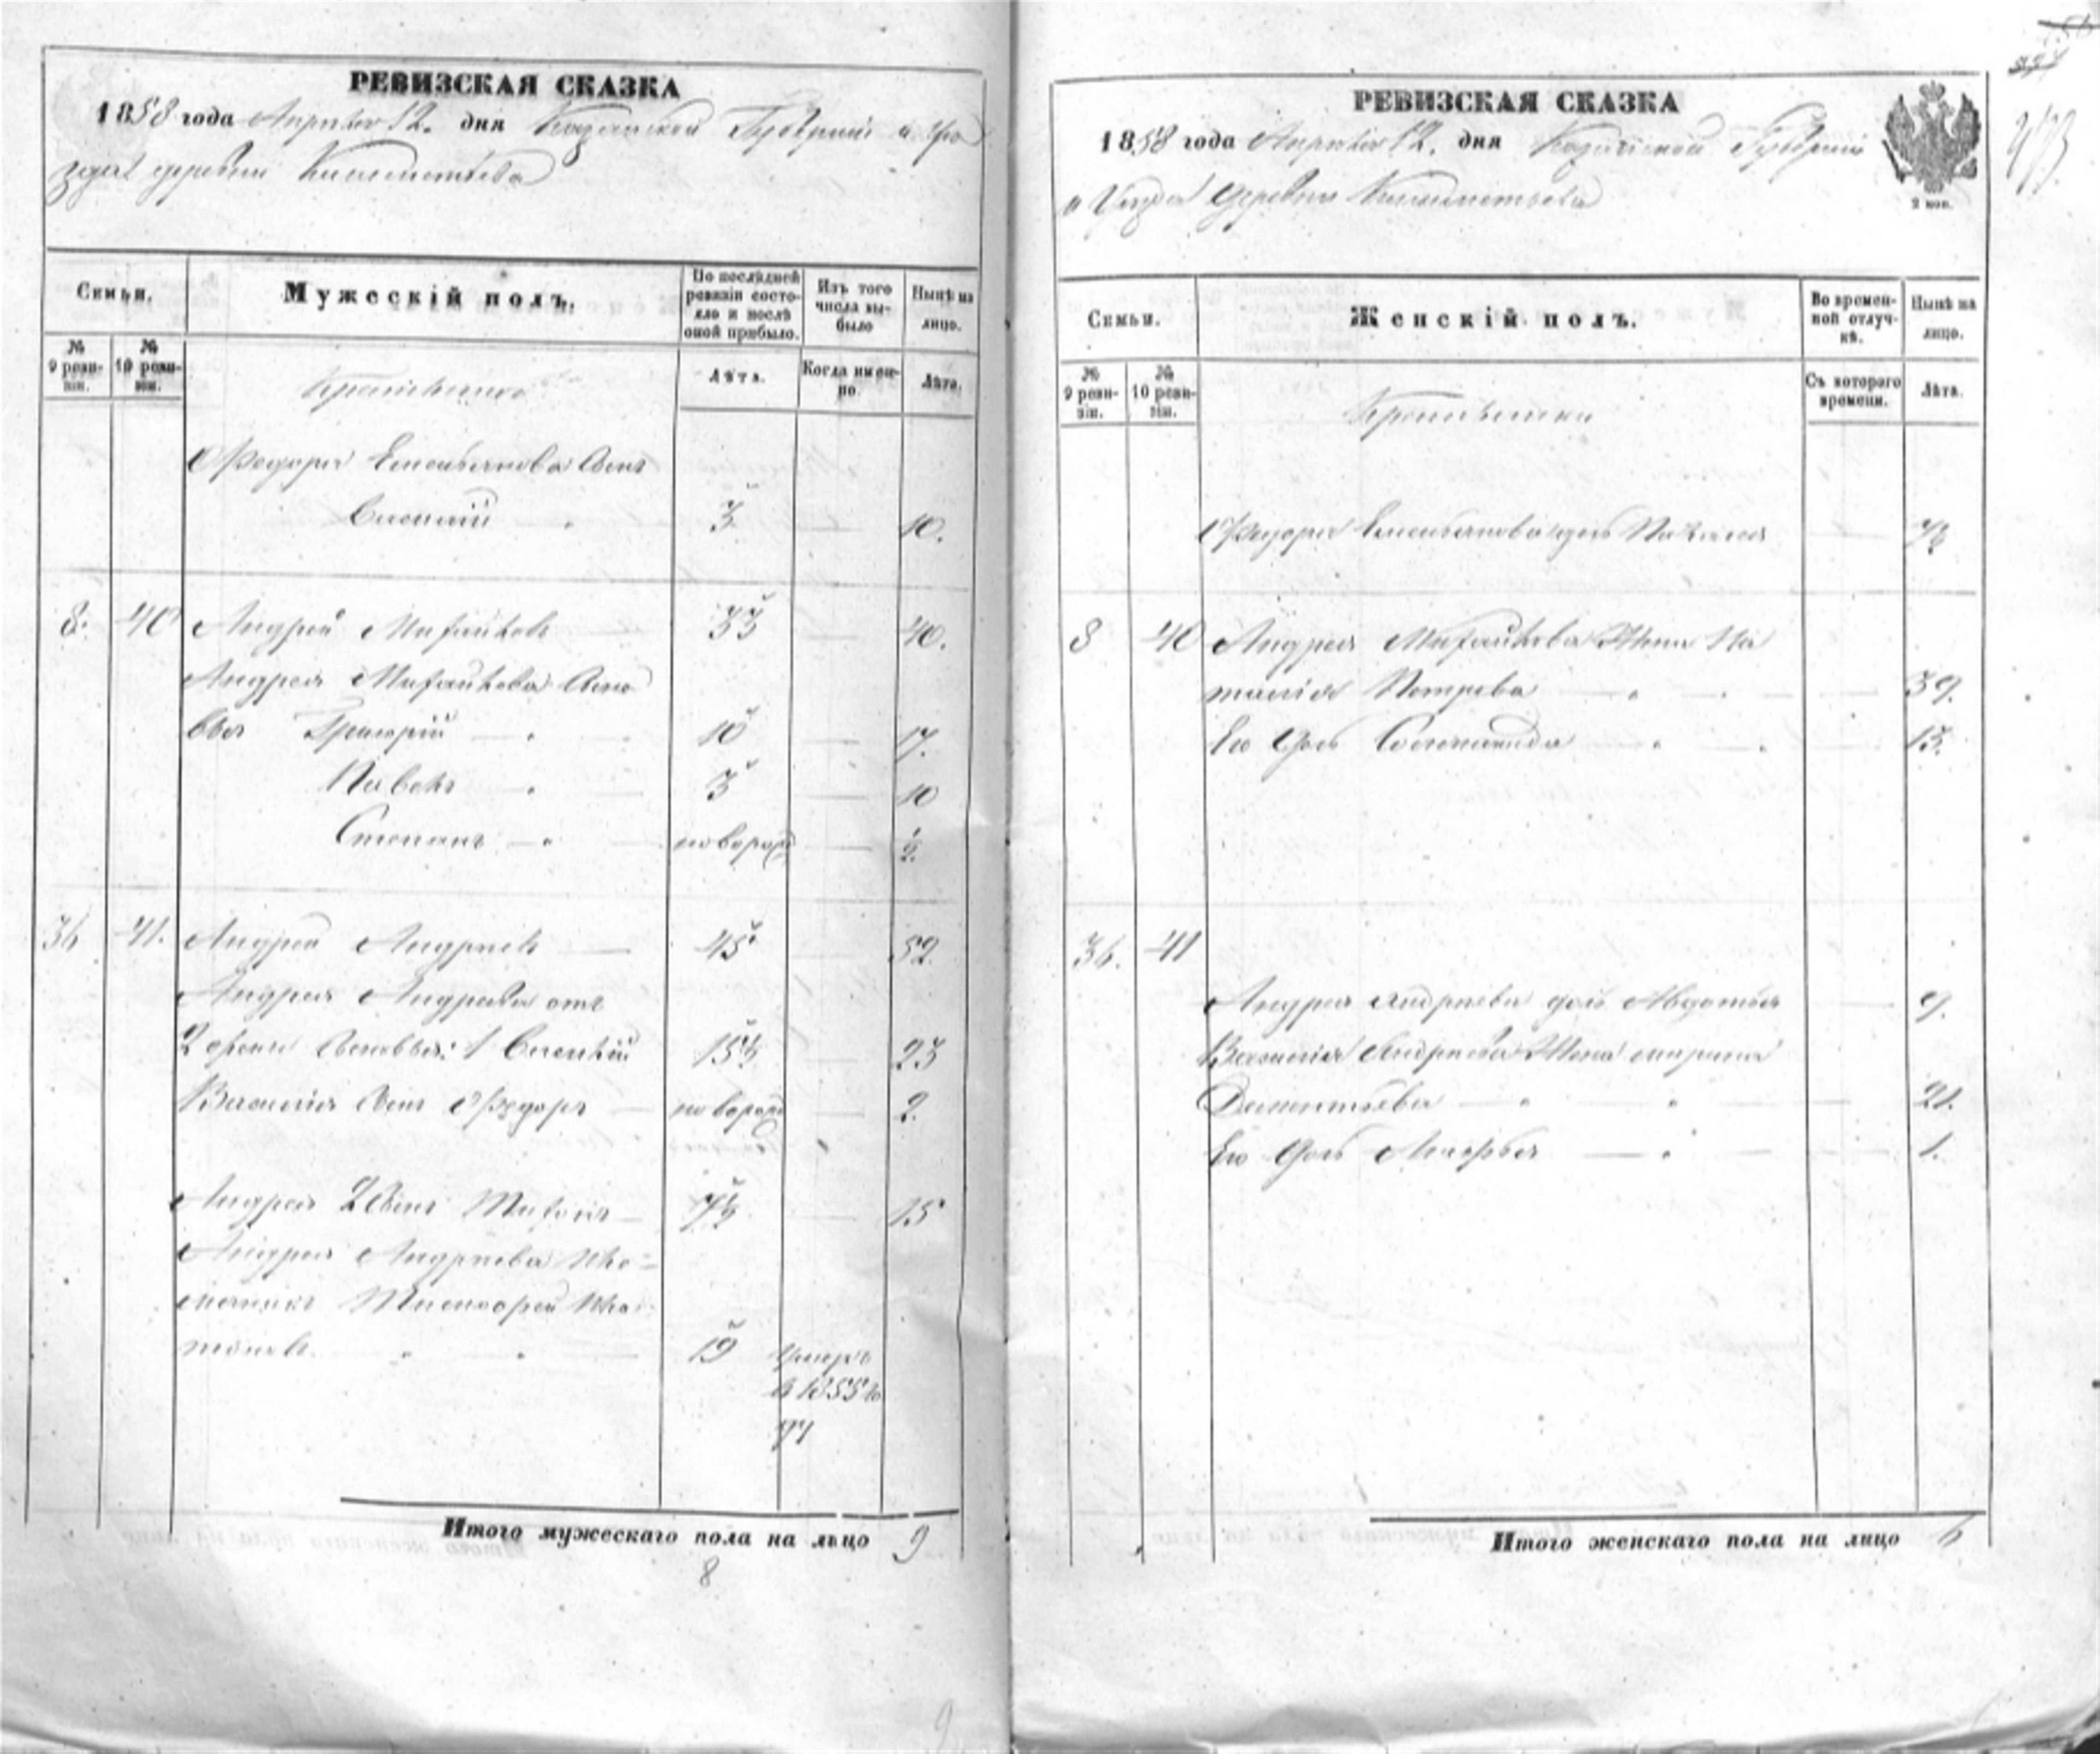 РЕВИЗСКАЯ СКАЗКА
1858 года Апреля 12. дня Казанской Губернии и Уѣ
зда деревни
Семьи.
Мужескій полъ.
По послѣдней ревизіи состояло и послѣ оной прибыло.
Изъ того числа выбыло
Нынѣ на лицо.
№ 9 ревизіи.
№ 10 ревизіи.
Лѣта.
Когда именно.
Лѣта.
Федора Емельянова сынъ
3 10.
8. 40 Андрей Михайловъ 33 40.
Андрея Михайлова сыно
вья Григорій 10 17.
Павелъ 3 10
Степанъ новорож 2.
36 41. Андрей Андреевъ 45 52.
Андрея Андреева отъ
2 жены сыновья: 1 Василій 15½ 23
Василія сынъ Федоръ новорож 2.
Андрея 2 сынъ 7½ 15
Андрея Андреева пле=
мянникъ Пла=
тоновъ. 19 умеръ
въ 1855 го
ду
Итого мужескаго пола на лицо 9
8
РЕВИЗСКАЯ СКАЗКА
1858 года Апреля 12. дня Казанской Губерніи
и Уезда Деревни
2 коп.
473.
Семьи.
Женскій полъ.
Во временной отлучкѣ.
Нынѣ на лицо.
№ 9 ревизіи.
№ 10 ревизіи.
Съ котораго времени.
Лѣта.
Федора Емельянова дочь
8 40 Андрея Михайлова Жена На
талія Петрова 39.
Его Дочь Соломонида 13.
36. 41
Андрея Андреева дочь Авдотья 9.
Василія Андреева Жена Марина
Дементьева 21.
Его Дочь 1.
Итого женскаго пола на лицо 6